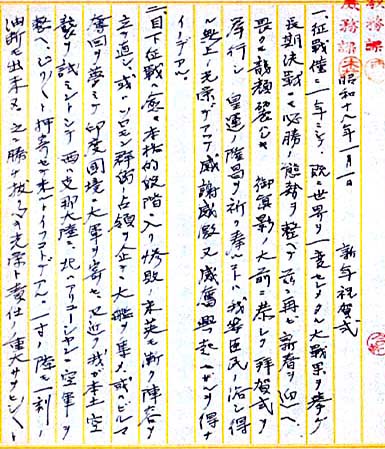 昭和十八年一月一日 新年祝賀式
一、征戦僅ニ一年ニシテ既ニ世界ヲ一変セシメタル大戦果ヲ挙ゲ
長期決戦ニ必勝ノ態勢ヲ整ヘテ茲ニ再ビ新春ヲ迎ヘ
畏クモ龍顔 御真影ノ大前ニ恭シク拝賀式ヲ
挙行シ 皇運ノ隆昌ヲ祈リ奉ルハ我等臣民ノ浴シ得
ル無上ノ光栄デアツテ感謝感激又感奮興起セザルヲ得ナ
イノデアル。
二、目下征戦ハ愈々本格的段階ニ入リ惨敗ノ米英モ漸ク陣容ヲ
立テ直シ、或ハソロモン群島ノ占領ヲ企テテ大艦ヲ集メ、或ハビルマ
奪回ヲ夢ミテ印度国境ニ大軍ヲ寄セ、又近ク我ガ本土空
襲ヲ試ミントシテ西ハ支那大陸ニ、北ハアリューシャンニ空軍ヲ
整ヘ、ヒシヒシト押寄セテ来ルトイフコトデアル。一寸ノ隙モ一刻ノ
油断モ出来ヌ。之ニ勝チ抜ク為ノ光栄ト責任ノ重大サヲヒシヒシト